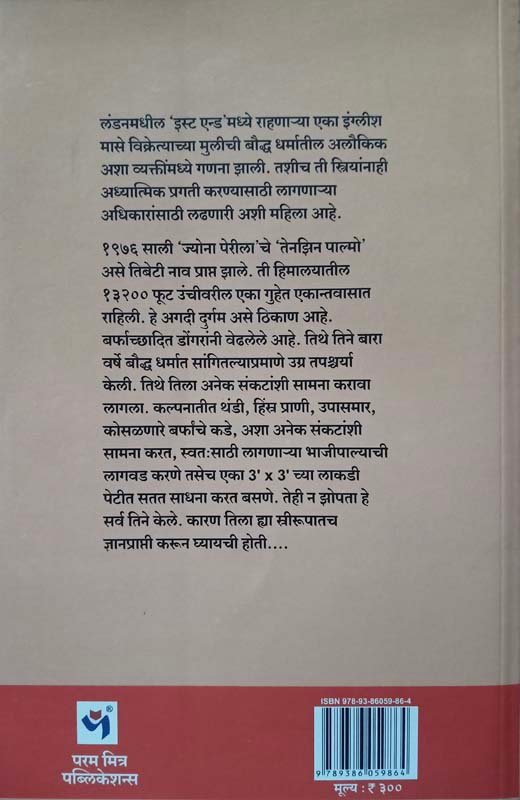 लंडनमधील 'इस्ट एन्ड'मध्ये राहणाऱ्या एका इंग्लीश
मासे विक्रेत्याच्या मुलीची बौद्ध धर्मातील अलौकिक
अशा व्यक्तींमध्ये गणना झाली. तशीच ती स्त्रियांनाही
अध्यात्मिक प्रगती करण्यासाठी लागणाऱ्या
अधिकारांसाठी लढणारी अशी महिला आहे.
१९७६ साली 'ज्योना पेरीला'चे 'तेनझिन पाल्मो'
असे तिबेटी नाव प्राप्त झाले. ती हिमालयातील
१३२०० फूट उंचीवरील एका गुहेत एकान्तवासात
राहिली. हे अगदी दुर्गम असे ठिकाण आहे.
बर्फाच्छादित डोंगरांनी वेढलेले आहे. तिथे तिने बारा
वर्षे बौद्ध धर्मात सांगितल्याप्रमाणे उग्र तपश्चर्या
केली. तिथे तिला अनेक संकटांशी सामना करावा
लागला. कल्पनातीत थंडी, हिंस्र प्राणी, उपासमार,
कोसळणारे बर्फाचे कडे, अशा अनेक संकटांशी
सामना करत, स्वतःसाठी लागणाऱ्या भाजीपाल्याची
लागवड करणे तसेच एका 3' x 3' च्या लाकडी
पेटीत सतत साधना करत बसणे. तेही न झोपता हे
सर्व तिने केले. कारण तिला ह्या स्त्रीरूपातच
ज्ञानप्राप्ती करून घ्यायची होती....
ISBN 978-93-86059-86-4
9 789386 059864
मूल्य : ₹ ३००
®
परम मित्र
पब्लिकेशन्स